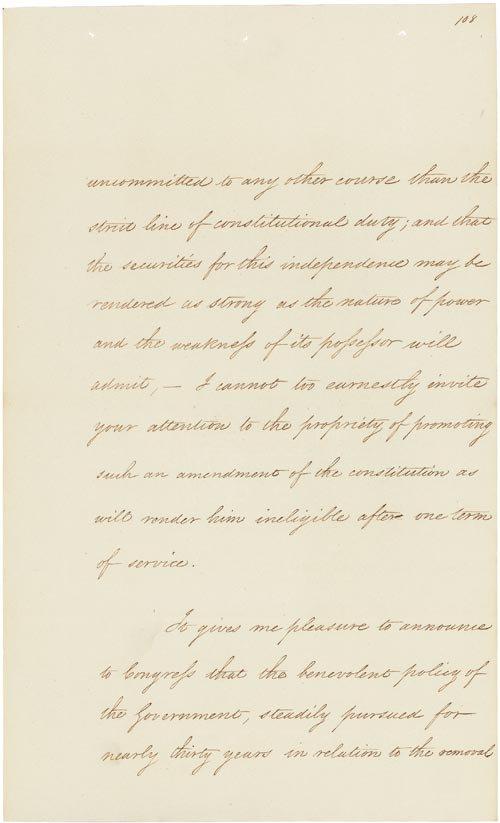 108
uncommitted to any other course than the
strict line of constitutional duty; and that
the securities for this independence may be
rendered as strong as the nature of power
and the weakness of its possessor will
admit, — I cannot too earnestly invite
your attention to the propriety of promoting
such an amendment of the constitution as
will render him ineligible after one term
of service.
It gives me pleasure to announce
to Congress that the benevolent policy of
the Government, steadily pursued for
nearly thirty years in relation to the removal